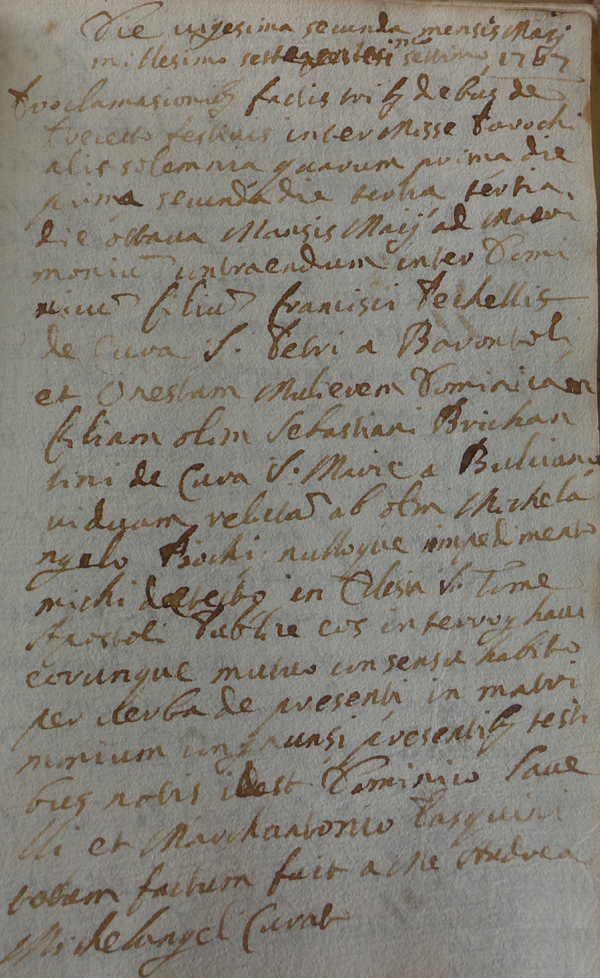 Die vigesima secunda mensis Maij
millesimo settimo 1787
Proclamasionib3 factis trib3 debus de
Precetto festivis inter Misse Parochi
alis solemnia quarum prima die
prima secunda die tertia tertia
die ottava Mansis Maij ad Matri
moniu contraendum inter Domi
nicu filiu Francisci Pechellis
de Cura S. Petri a
et Onestam Mulierem Dominicam
filiam olim Sebastiani Brichan
tini de Cura S. Marie a
viduam relicta ab olm Michela
ngelo nulloque impedimento
michi detecto in Clesia S. Tome
Apostoli Publice eos interrog haui
eorunque mutuo consensu habito
per verba de presenti in matri
monium congiunsi presentib3 testi
bus notis idest Dominico Save
lli et Marchantonio Pasquini
totum factum fuit a Me Andrea
Michelangeli Curat